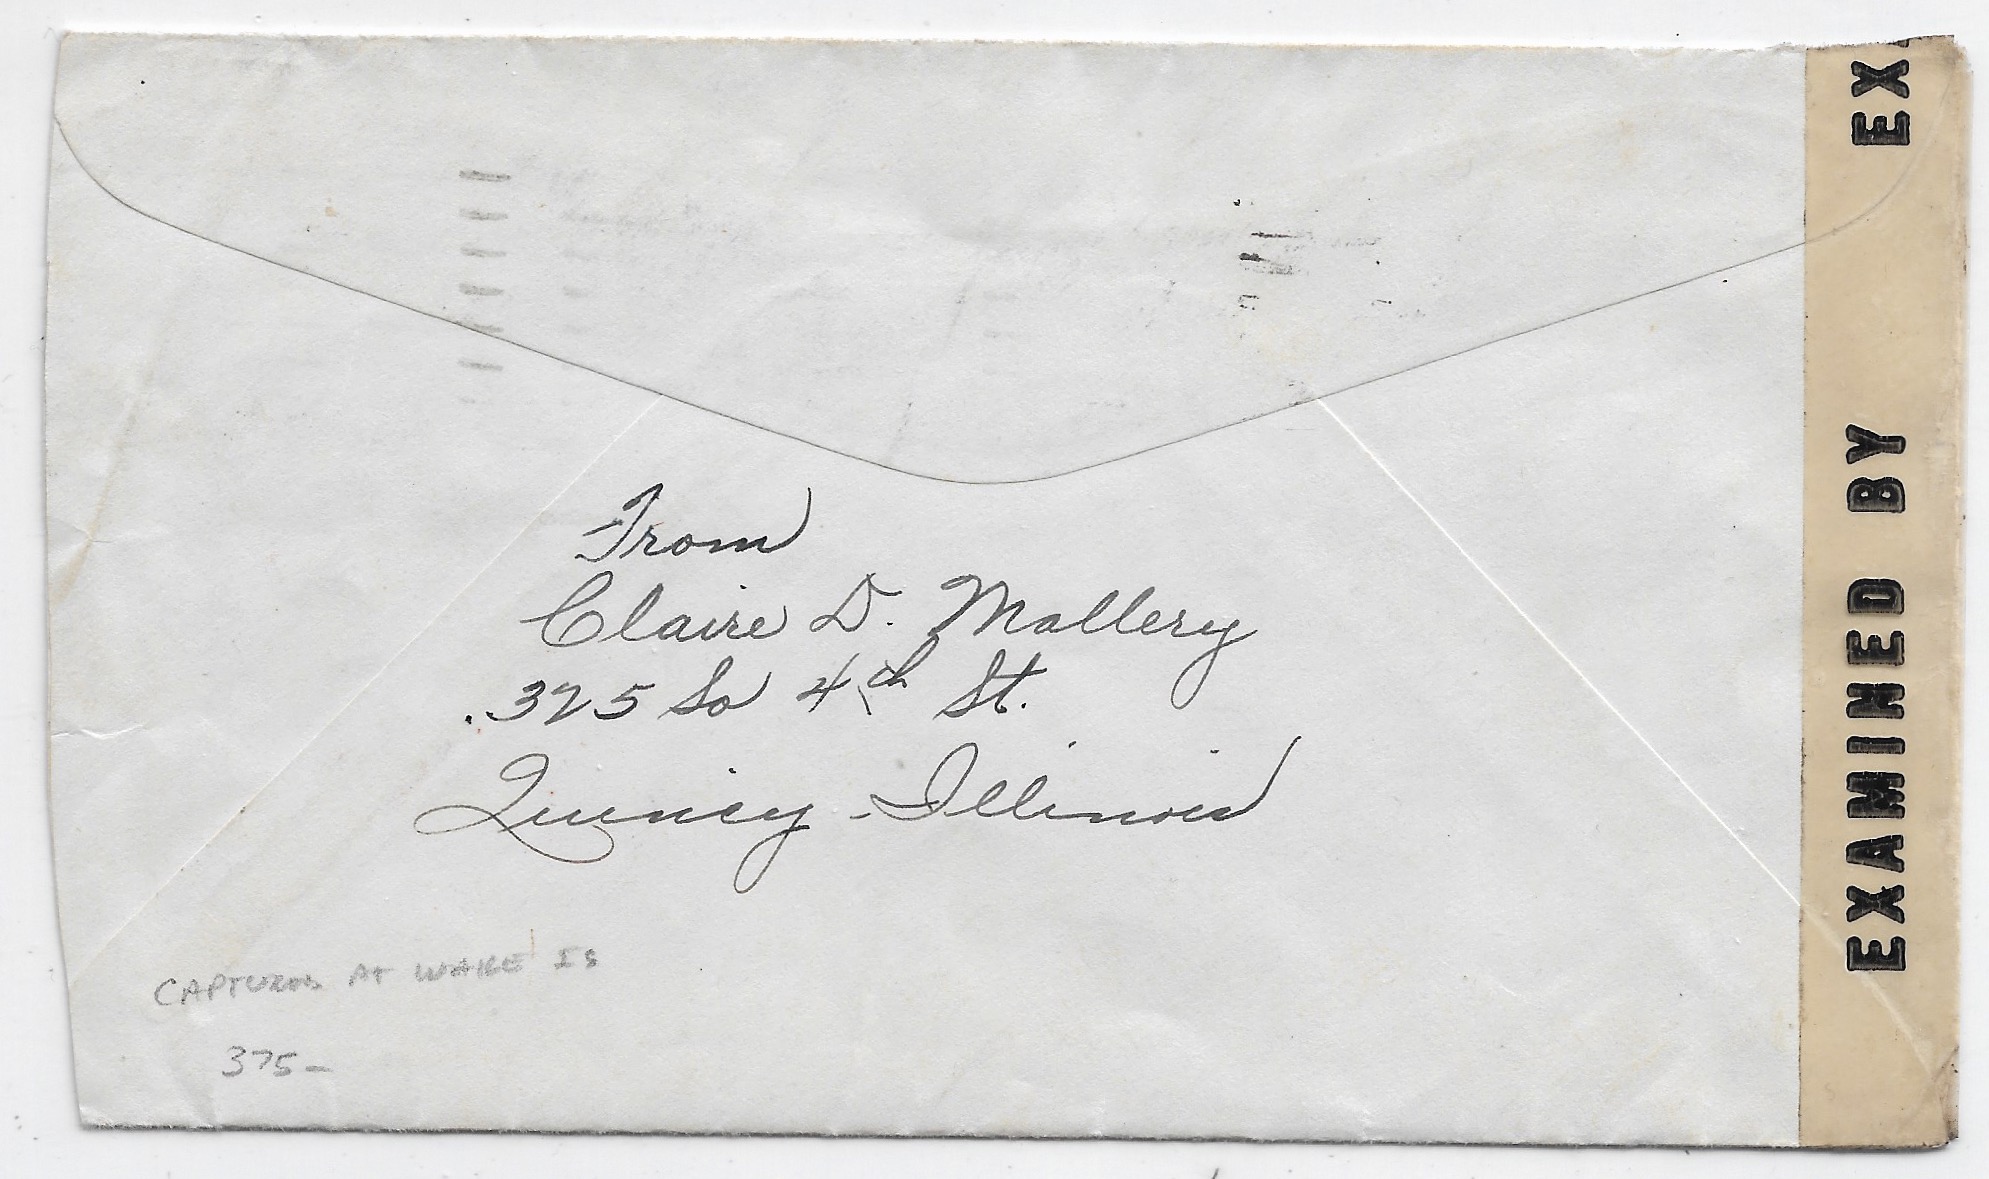 From
Claire D. Mallery
325 So 4th St.
Quincy - Illinois
CAPTURED AT WAKE IS
375-
EXAMINED BY
EX